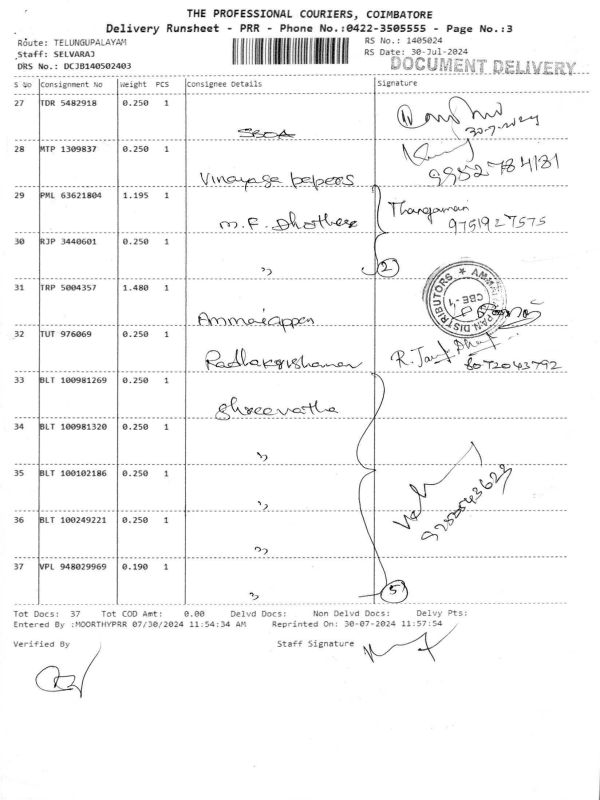 THE PROFESSIONAL COURIERS, COIMBATORE
Delivery Runsheet - PRR - Phone No.:0422-3505555 - Page No.:3
Route: TELUNGUPALAYAM
RS No.: 1405024
Staff: SELVARAJ
RS Date: 30-Jul-2024
DRS No.: DCJB140502403
DOCUMENT DELIVERY
S No Consignment No Weight PCS Consignee Details Signature
27 TDR 5482918 0.250 1
30-7-2024
28 MTP 1309837 0.250 1 Vinayaga papers
9952784131
29 PML 63621804 1.195 1 M.F. Dhothers Thangamani
9751927575
30 RJP 3440601 0.250 1 " 2
31 TRP 5004357 1.480 1 Ammaiappan
AMMAIAPPAN DISTRIBUTORS
CBE-1
32 TUT 976069 0.250 1 Radhakrishanan
33 BLT 100981269 0.250 1 Shreevatha
34 BLT 100981320 0.250 1 "
35 BLT 100102186 0.250 1 "
36 BLT 100249221 0.250 1 "
37 VPL 948029969 0.190 1 " 5
Tot Docs: 37 Tot COD Amt: 0.00 Delvd Docs: Non Delvd Docs: Delvy Pts:
Entered By :MOORTHYPRR 07/30/2024 11:54:34 AM Reprinted On: 30-07-2024 11:57:54
Verified By Staff Signature